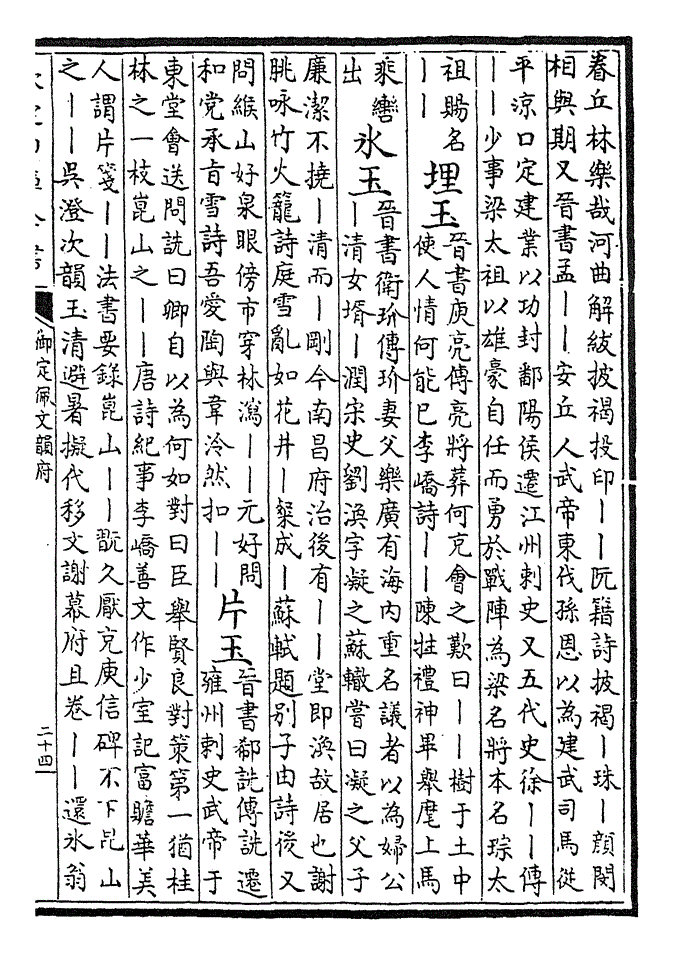 眷丘林樂哉河曲解紱披褐投印丨丨阮籍詩披褐丨珠丨顔閔
相與期又晉書孟丨丨安丘人武帝東伐孫恩以為建武司馬從
平涼口定建業以功封鄱陽侯遷江州刺史又五代史徐丨丨傳
丨丨少事梁太祖以雄豪自任而勇於戰陣為梁名將本名琮太
祖賜名
丨丨
埋玉
晉書庾亮傳亮將葬何充會之歎曰丨丨樹于土中
使人情何能已李嶠詩丨丨陳牲禮神畢舉麾上馬
乘轡
出
氷玉
晉書衛玠傳玠妻父樂廣有海内重名議者以為婦公
丨清女壻丨潤宋史劉渙字凝之蘇轍嘗曰凝之父子
廉潔不撓丨清而丨剛今南昌府治後有丨丨堂即渙故居也謝
朓咏竹火籠詩庭雪亂如花井丨粲成丨蘇軾題别子由詩後又
問緱山好泉眼傍市穿林瀉丨丨元好問
和党承㫖雪詩吾愛陶與韋泠然扣丨丨
片玉
晉書郤詵傳詵遷
雍州刺史武帝于
東堂會送問詵曰卿自以為何如對曰臣舉賢良對策第一猶桂
林之一枝崑山之丨丨唐詩紀事李嶠善文作少室記富贍華美
人謂片箋丨丨法書要錄崑山丨丨翫久厭充庾信碑不下昆山
之丨丨吳澄次韻玉清避暑擬代移文謝幕府且卷丨丨還氷翁
御定佩文韻府
二十四